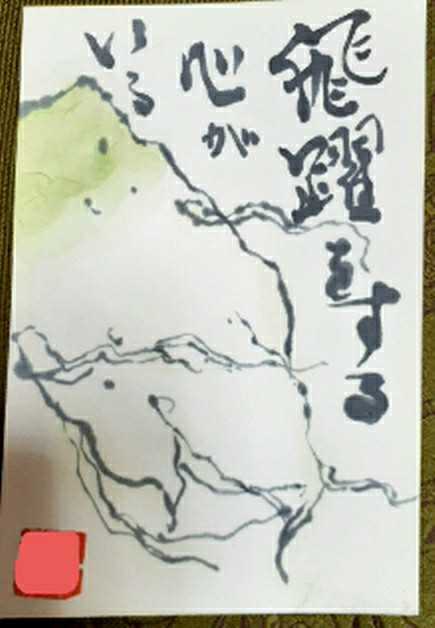 飛躍をする
心が
いる